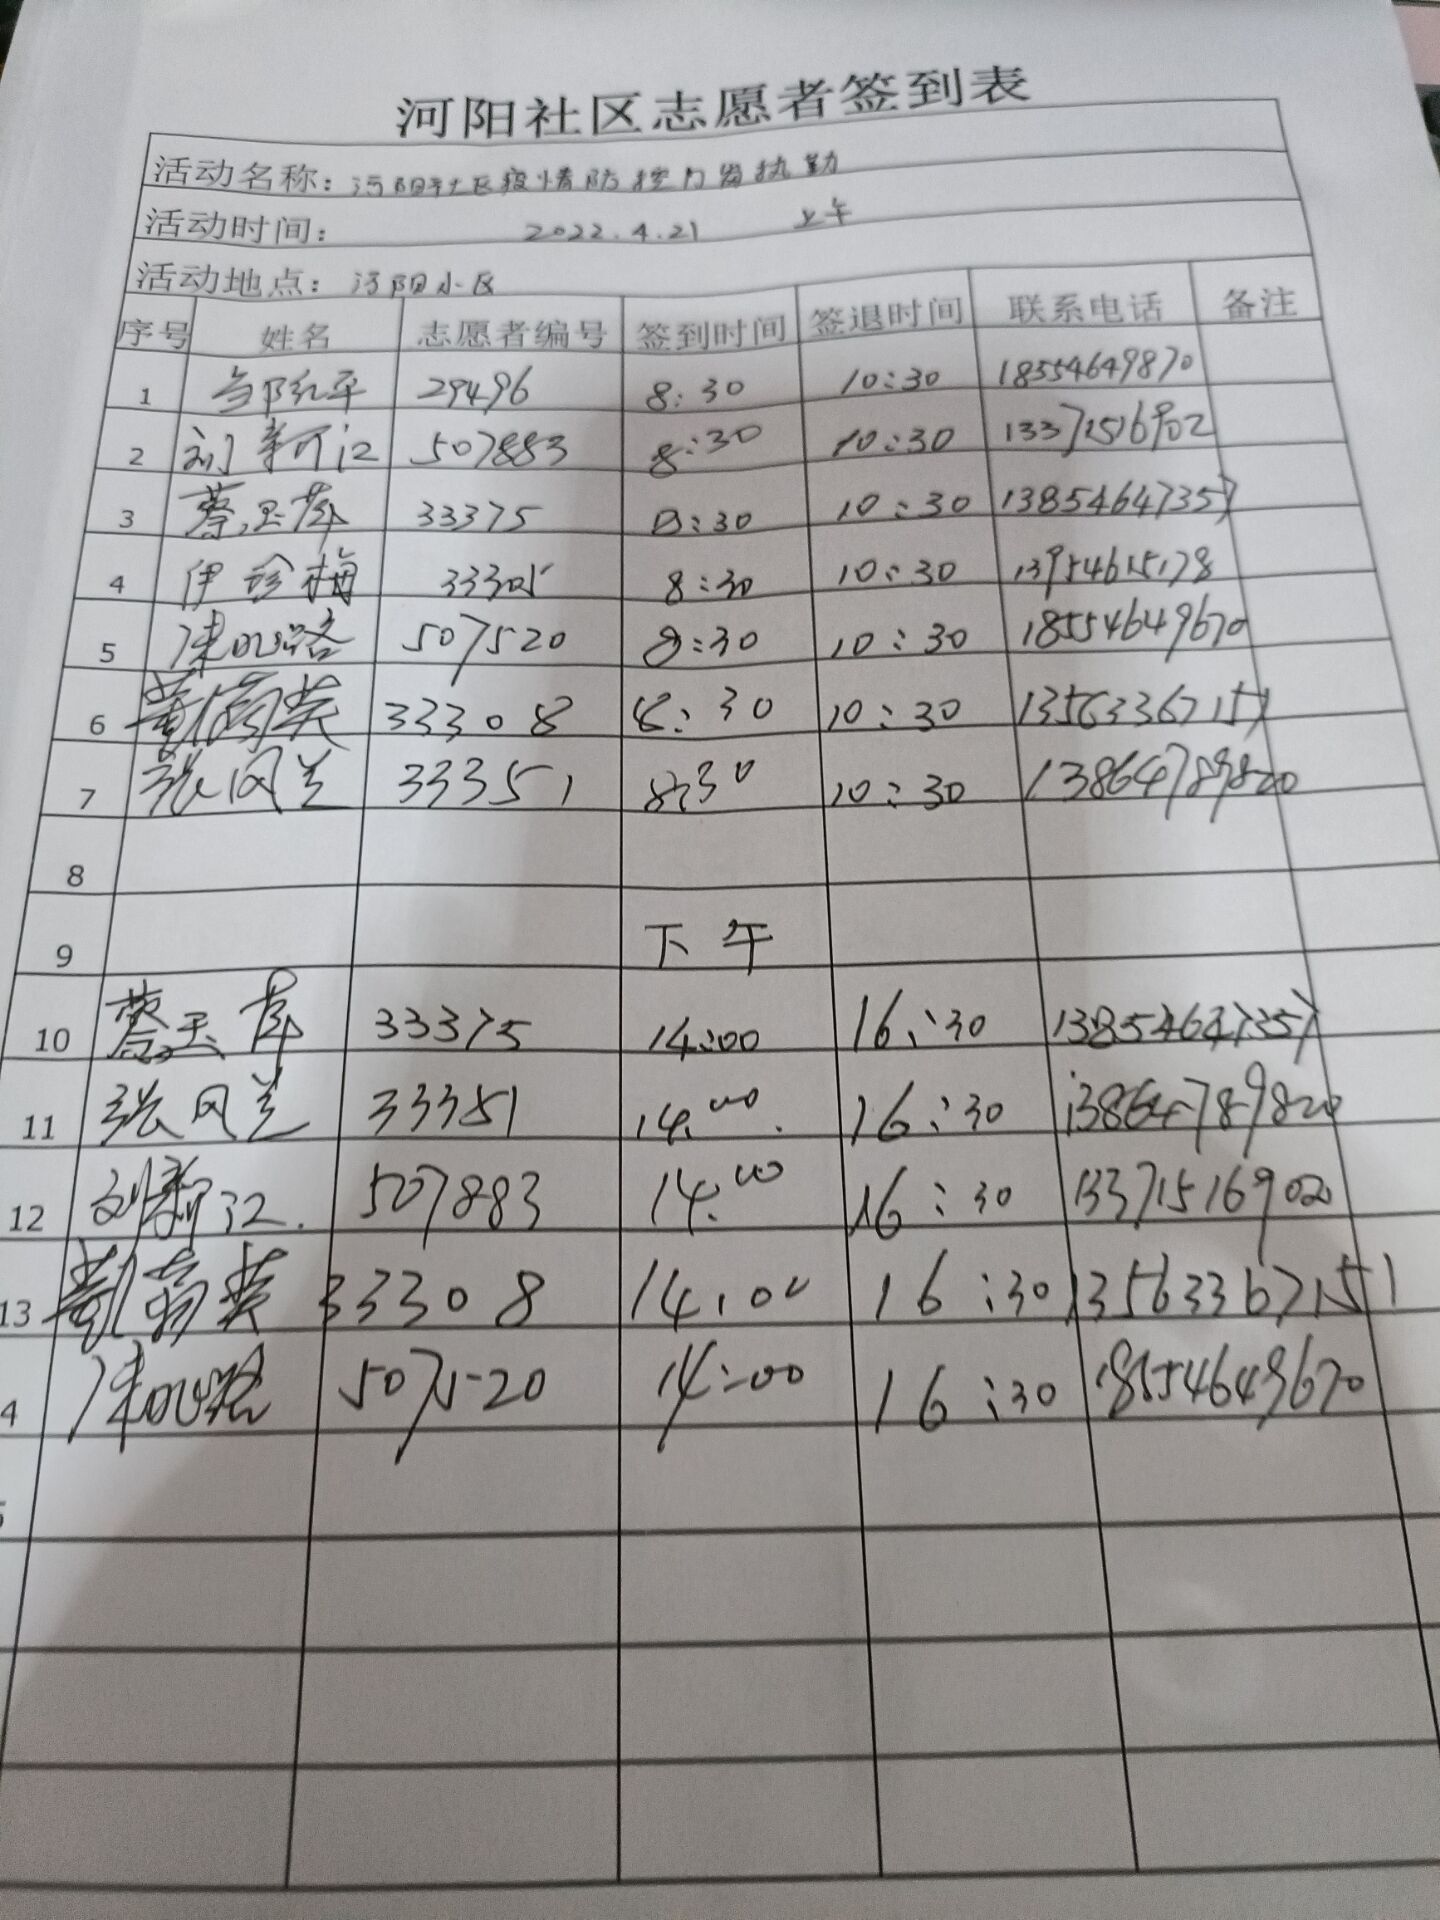 河阳社区志愿者签到表
活动名称：河阳社区疫情防控门岗执勤
活动时间： 2022.4.21 上午
活动地点：河阳小区
序号 姓名 志愿者编号 签到时间 签退时间 联系电话 备注
1 邹红平 29496 8:30 10:30 18554649870
2 刘新江 507883 8:30 10:30 13371516902
3 蔡玉萍 33375 8:30 10:30 13854647357
4 伊珍梅 8:30 10:30 13954615178
5 507520 8:30 10:30 18554649670
6 董菊英 33308 8:30 10:30 13563367151
7 张风兰 33351 8:30 10:30 13864789820
8
9 下午
10 蔡玉萍 33375 14:00 16:30 13854647357
11 张风兰 33351 14:00 16:30 13864789820
12 刘新江. 507883 14:00 16:30 13371516902
13 董菊英 33308 14:00 16:30 13563367151
4 507520 14:00 16:30 18554649670